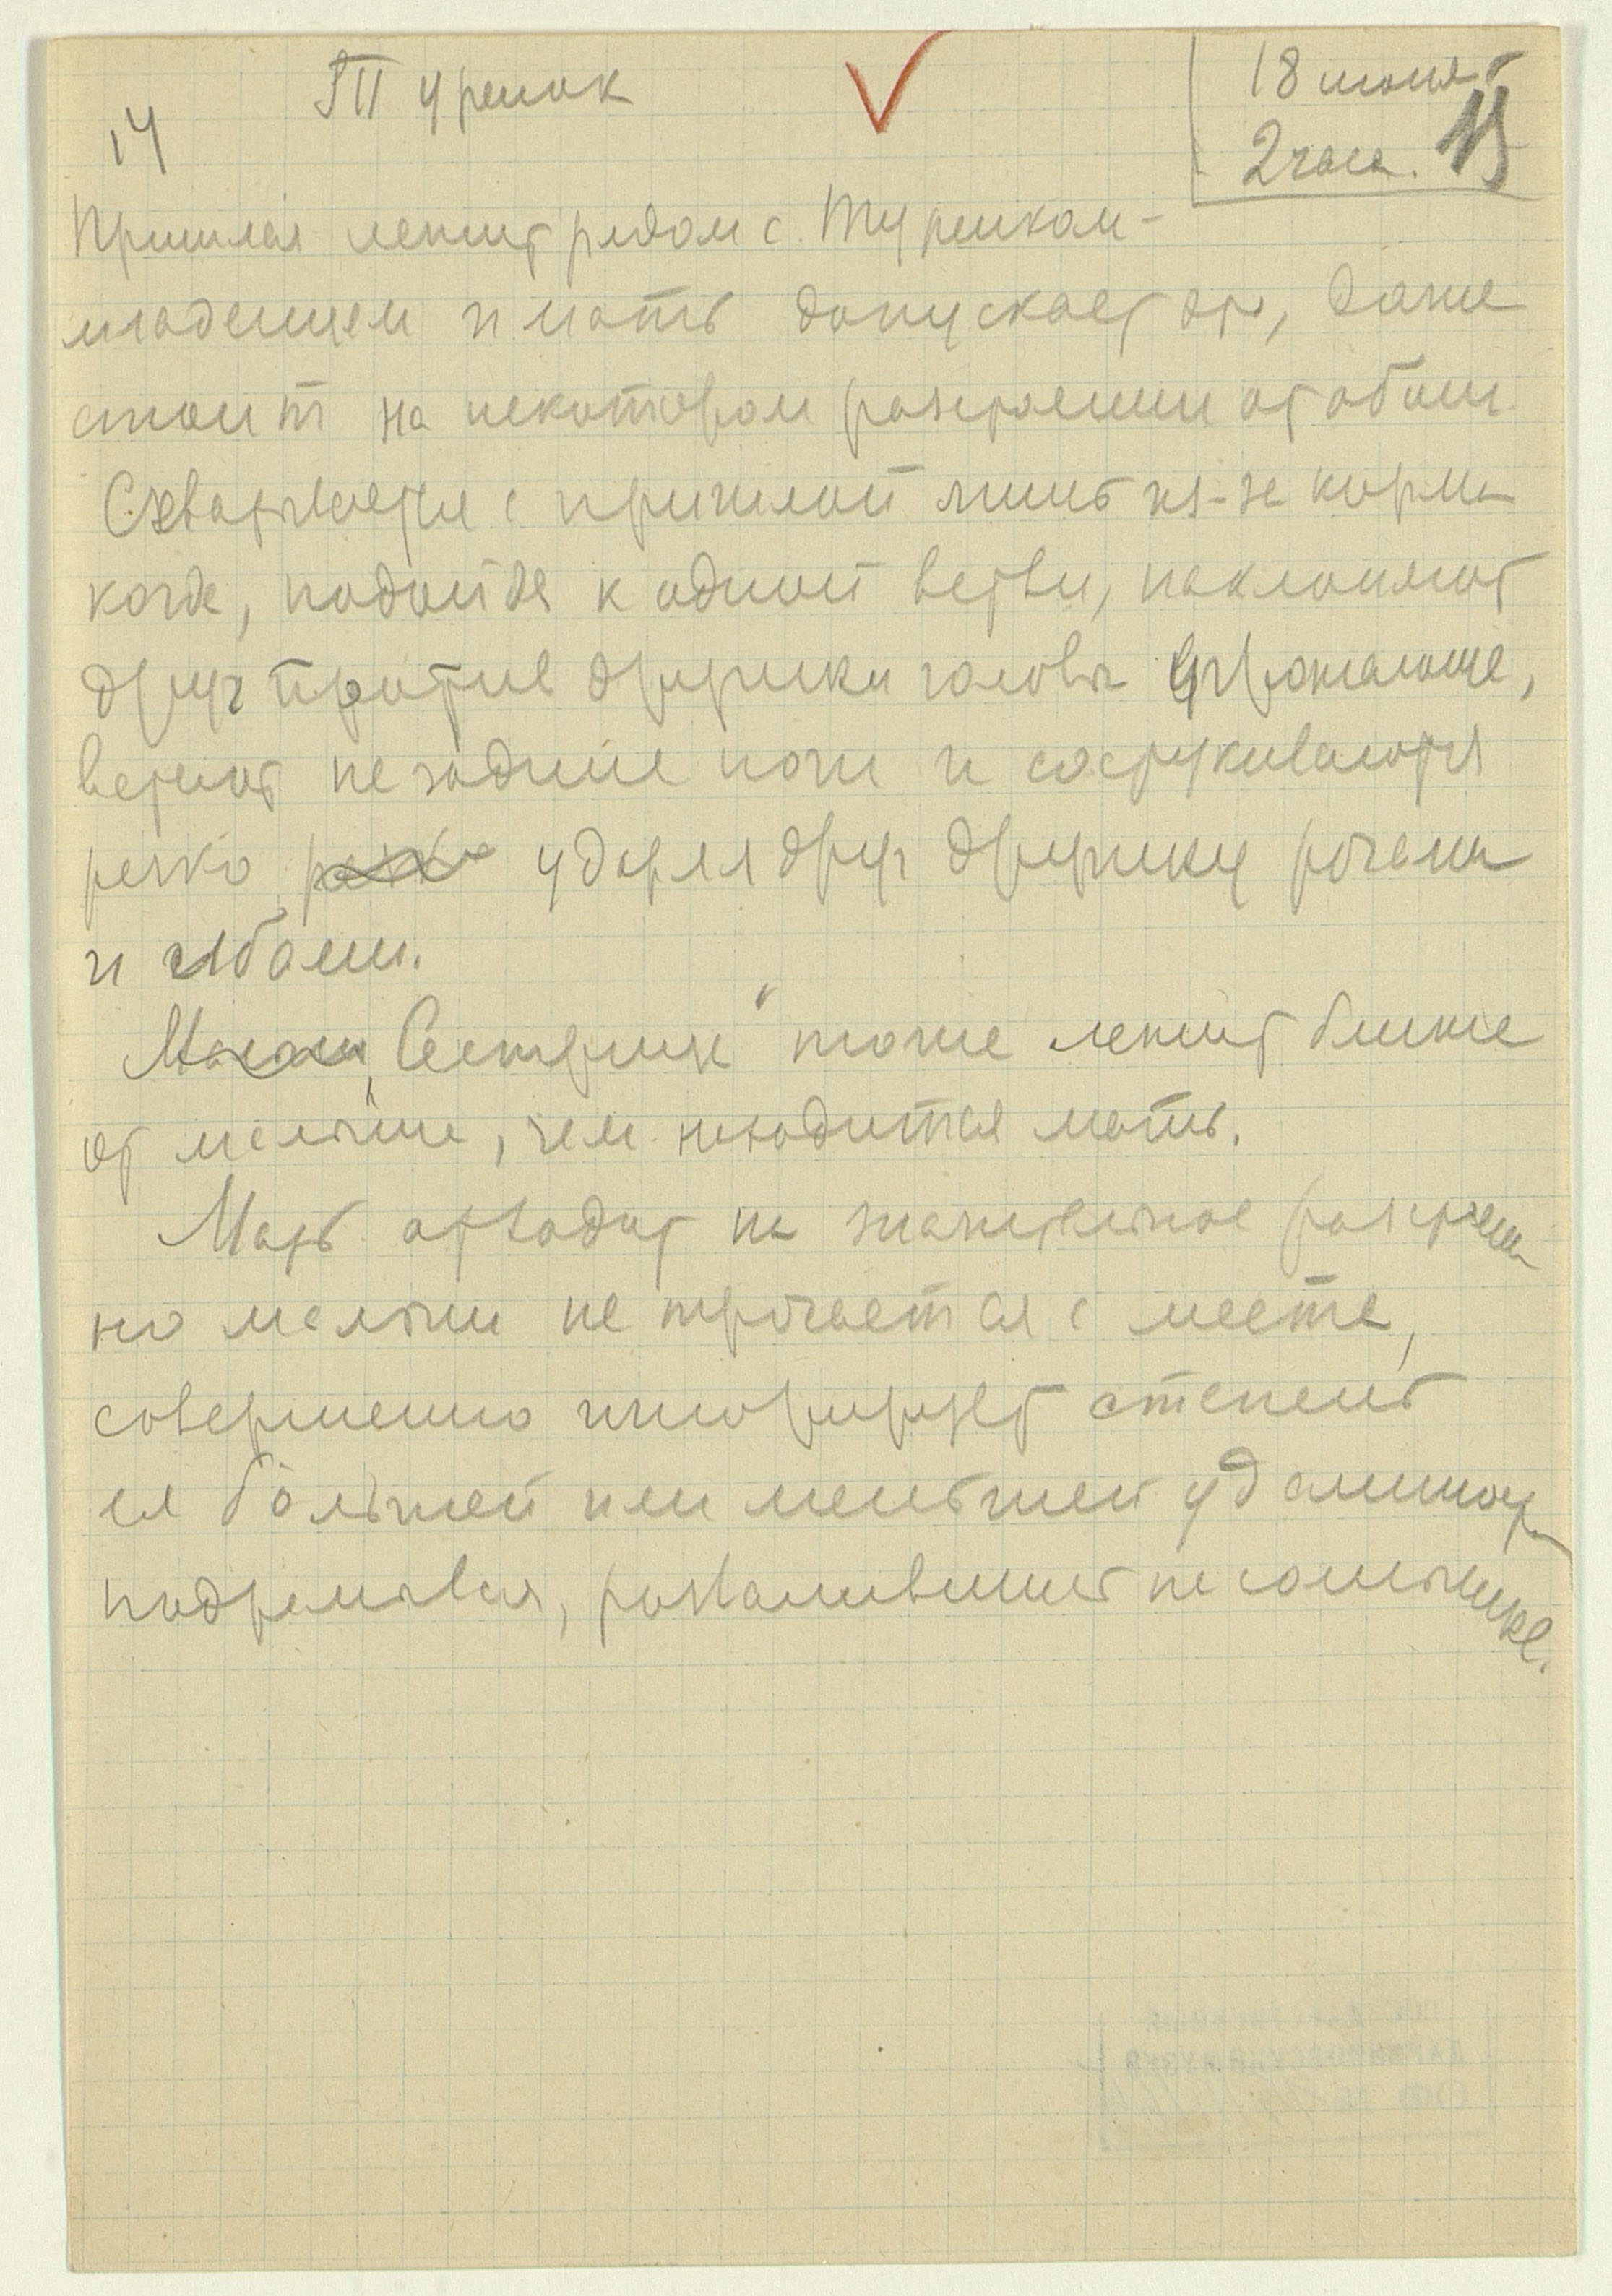 14
III Турёнок
18 июня
2 часа.
15
Пришлая лежит рядом с. Туренком-
младенцем и мать допускает это, даже
стоит на некотором расстоянии от обоих
Схватывается с пришлой лишь из-за корма
когда, подойдя к одной ветви, наклоняют
друг против дружки головы угрожающе,
встают на задние ноги и состукиваются
резко ударяя друг дружку рогами
и лбами.
"Сестрица" тоже лежит ближе
от малыша, чем находится мать.
Мать отходит на значительное расстояние
но малыш не трогается с места,
совершенно игнорирует степень
ея большей или меньшей удаленности
подремывая, развалившись на солнышке.